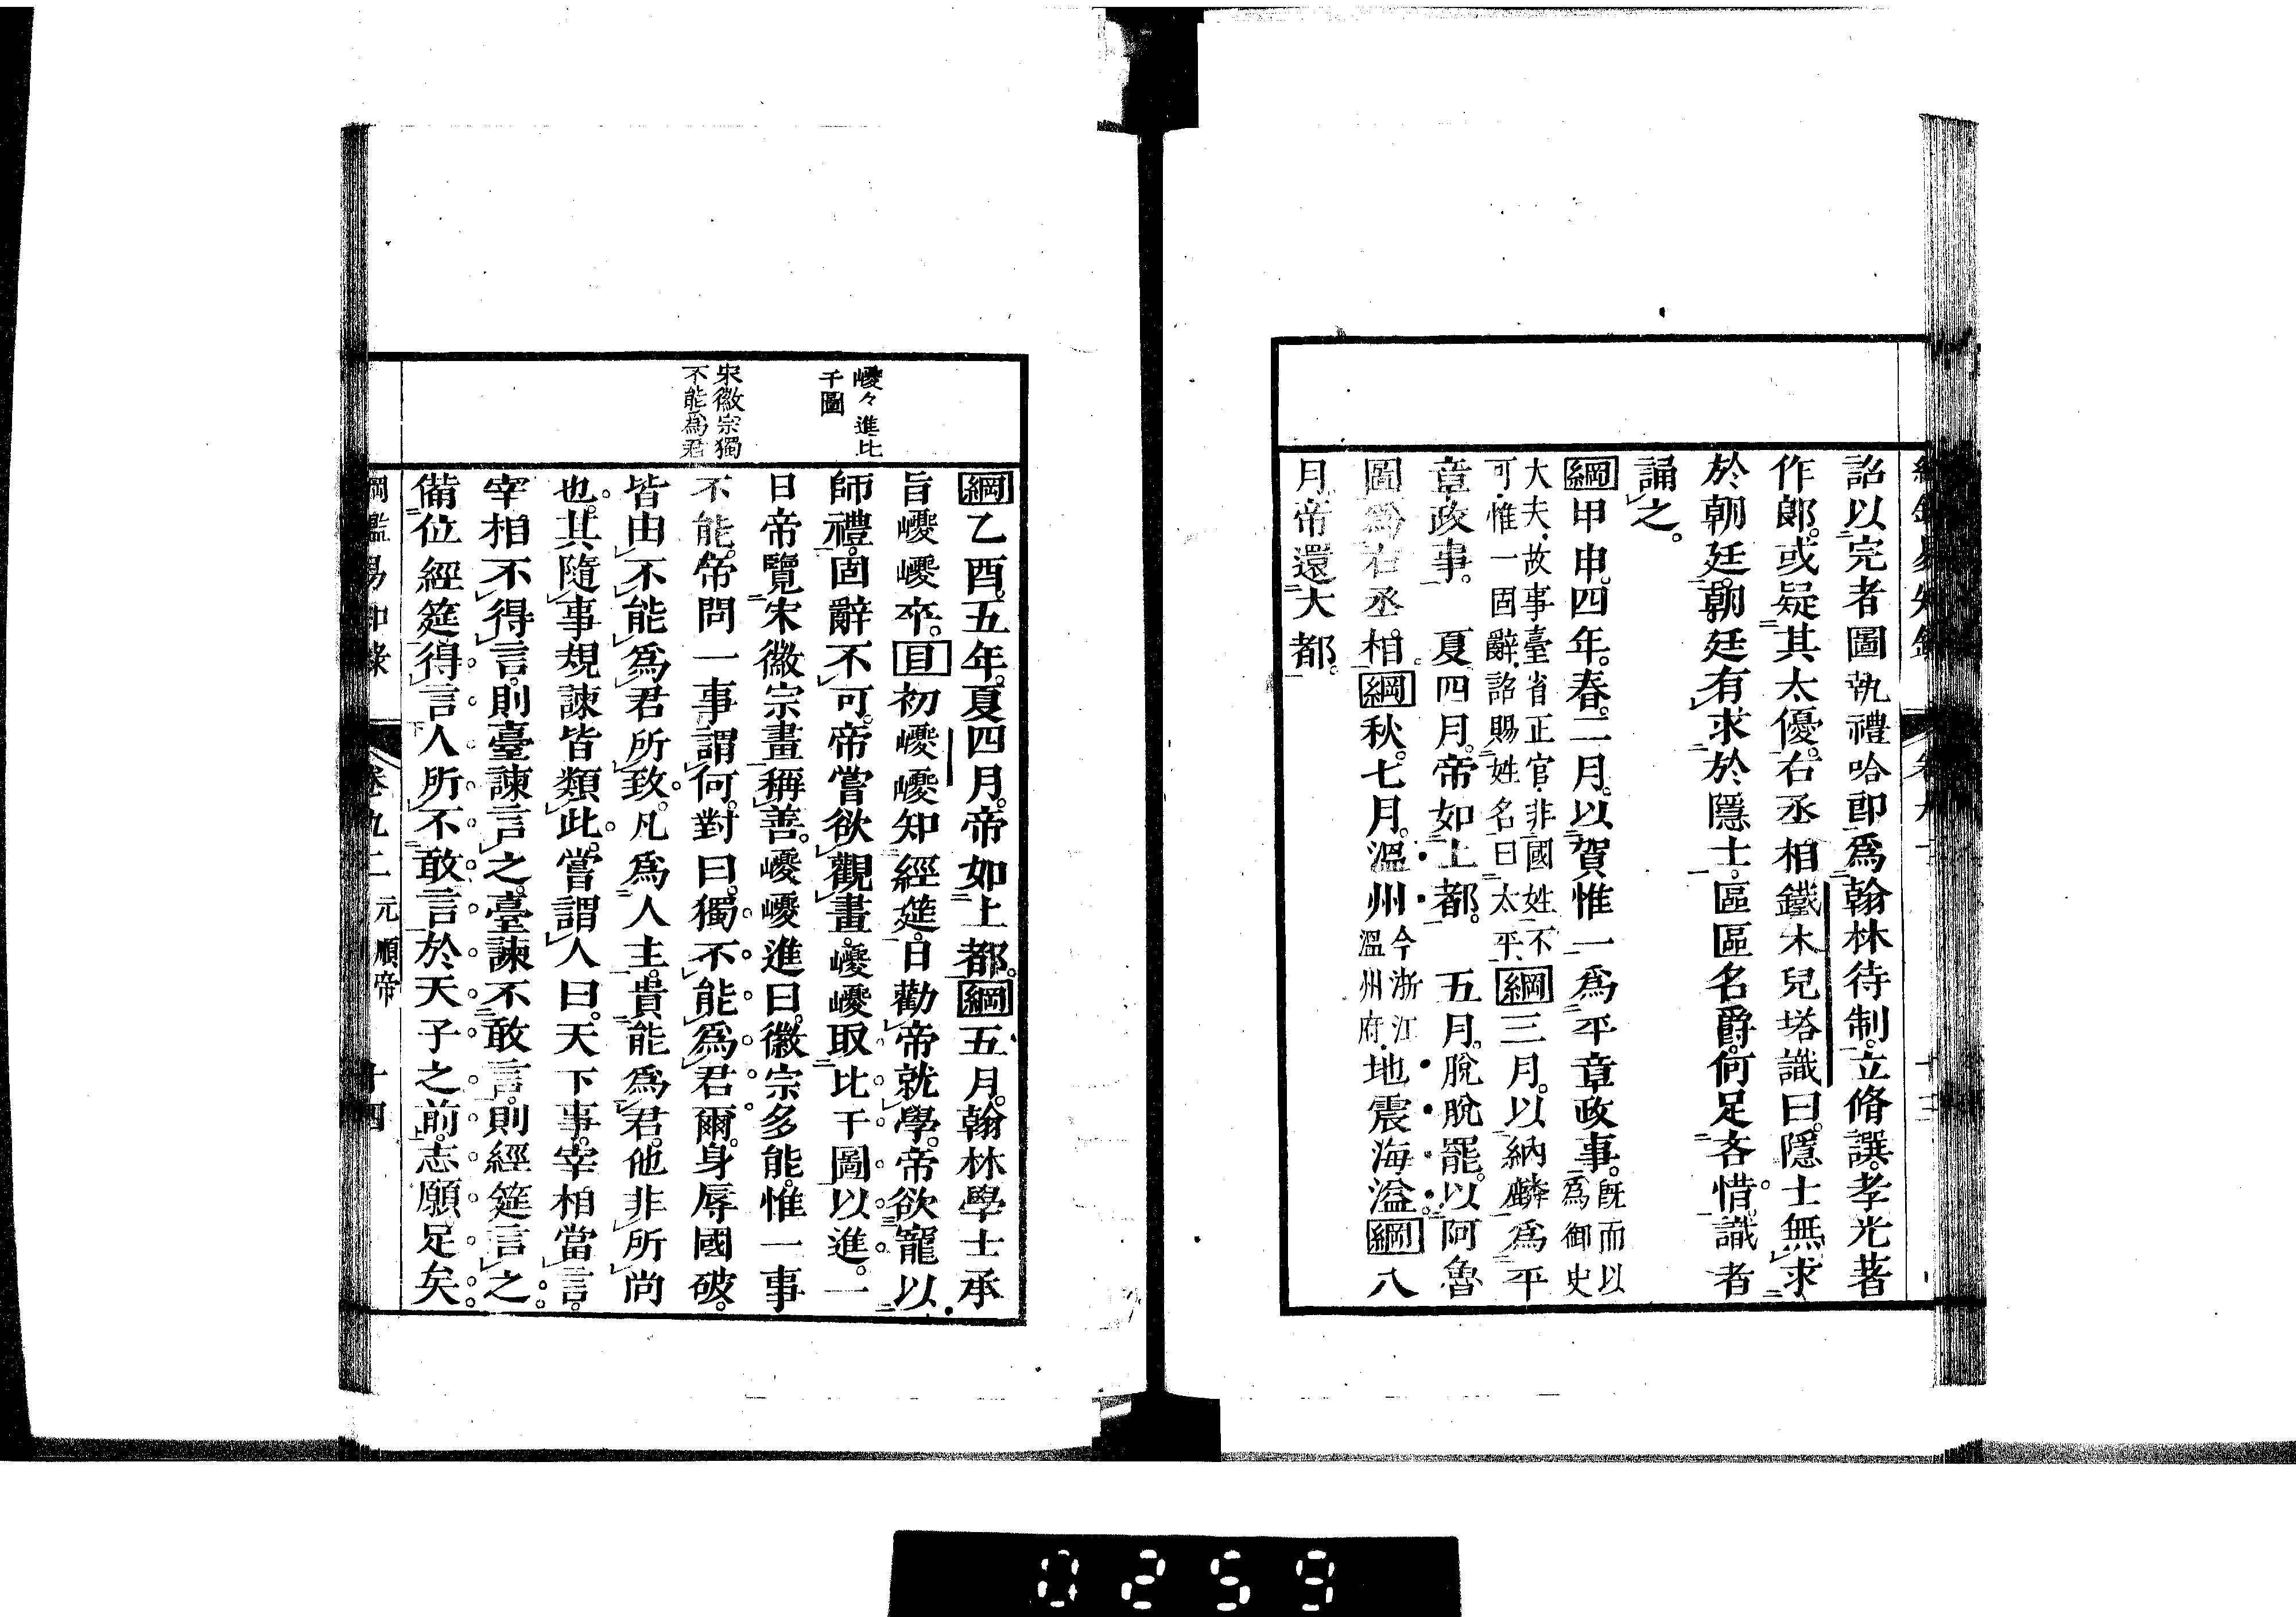 詔以完者圖執禮哈郎爲翰林待制。立脩譔。孝光著
作郎。或疑其太優。右丞相鐵木兒塔識曰。隱士無求
於朝廷。朝廷有求於隱士。區區名爵。何足吝惜。識者
誦之。
綱甲申。四年。春。二月。以賀惟一爲平章政事。既而以
爲御史
大夫。故事臺省正官。非國姓不
可。惟一固辭。詔賜姓名曰太平。綱三月。以納麟爲平
章政事。 夏四月。帝如上都。 五月。脫脫罷。以阿魯
圖爲右丞相。綱秋。七月。溫州今浙江
溫州府。地震海溢。綱八
月。帝還大都。
十三
巙々進比
干圖
宋徽宗獨
不能爲君
綱乙酉。五年。夏四月。帝如上都。綱五月。翰林學士承
旨巙巙卒。目初巙巙知經筵。日勸帝就學。帝欲寵以
師禮。固辭不可。帝嘗欲觀畫。巙巙取比干圖以進。一
日帝覽宋徽宗畫稱善。巙巙進曰。徽宗多能。惟一事
不能。帝問一事謂何。對曰。獨不能爲君爾。身辱國破。
皆由不能爲君所致。凡爲人主。貴能爲君。他非所尚
也。其隨事規諫皆類此。嘗謂人曰。天下事。宰相當言。
宰相不得言。則臺諫言之。臺諫不敢言。則經筵言之。
備位經筵。得言人所不敢言於天子之前。志願足矣。
綱鑑易知錄 卷九二 元順帝 十四
0259